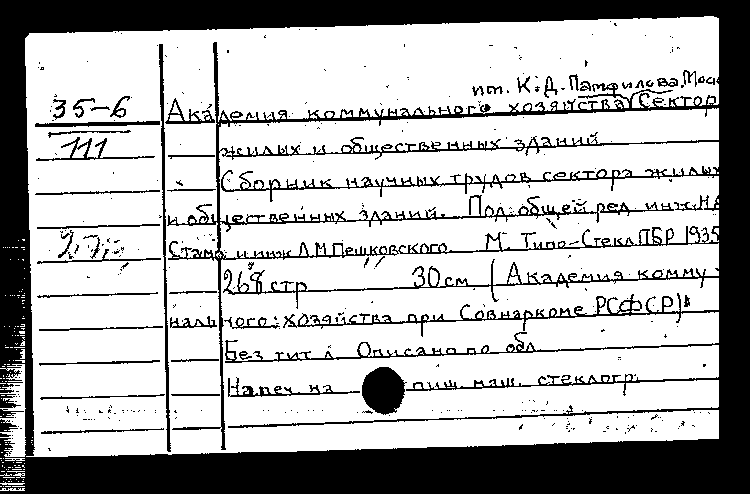 им. К. Д. Памфилова, Моск
35-6 Академия коммунального хозяйства Сектор
111 жилых и общественных зданий
Сборник научных трудов сектора жилых
и общественных зданий. Под общей ред инж. Н.А
Стамо и инж Л.М.Пешковского М. Типо-Стекл ПБР 1935
268 стр 30 см (Академия комму-
нального: хозяйства при Совнаркоме РСФСР)
Без тит л. Описано по обл
Напеч. на пиш. маш. стеклогр.